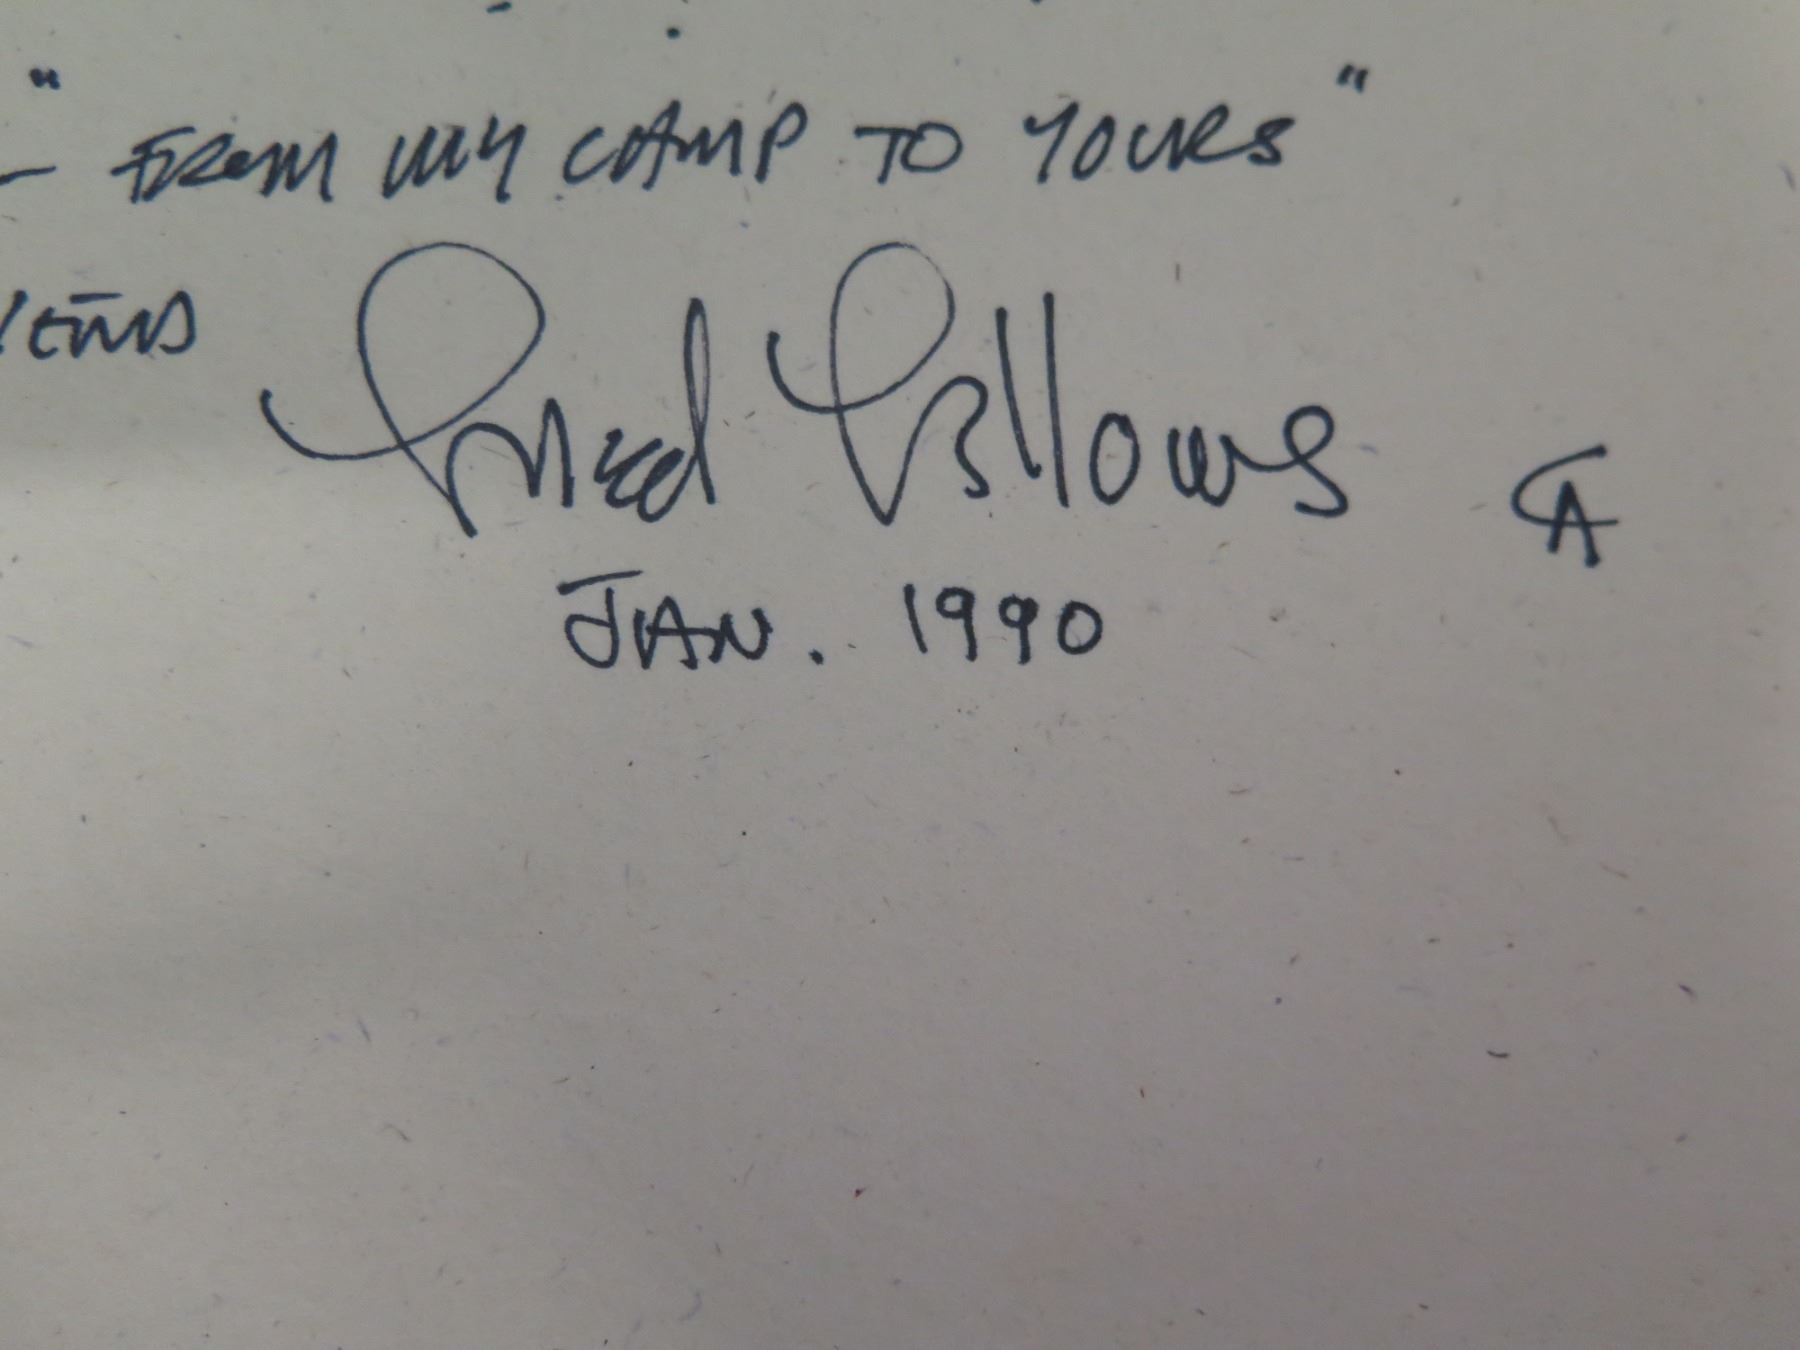 "
"
- FROM MY CAMP TO YOURS
Fred Fellows CA
JAN. 1990